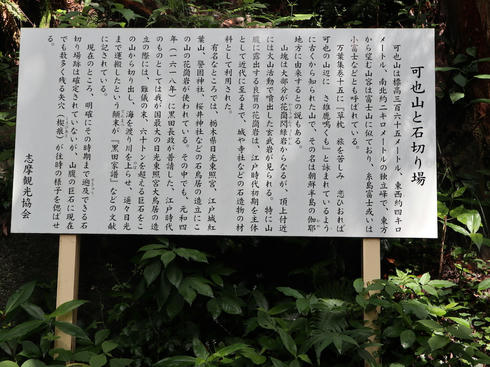 可也山と石切り場
可也山は標高三百六十五メートル、東西約四キロ
メートル、南北約二キロメートルの独立峰で、東方
から望む山容は富士山に似ており、糸島富士或いは
小富士などとも呼ばれている。
万葉集巻十五に「草枕 旅を苦しみ 恋ひおれば
可也の山辺に さ雄鹿鳴くも」と詠まれているよう
に古くから知られた山で、その名は朝鮮半島の伽耶
地方に由来するとの説もある。
山塊は大部分が花崗閃緑岩からなるが、頂上付近
には火山活動で噴出した玄武岩が見られる。特に山
腹に露出する良質の花崗岩は、江戸時代初期を主体
として近代に至るまで、城や寺社などの石造物の材
料として利用された。
有名なところでは、栃木県日光東照宮、江戸城紅
葉山、警固神社、桜井神社などの石鳥居の造立にこ
の山の花崗岩が使われている。その中でも、元和四
年(一六一八年)に黒田長政が普請した、江戸時代
のものとしては我が国最大の日光東照宮大鳥居の造
立の際には、難儀の末、六十トンを超える巨石をこ
の山から切り出し、海を渡り川を上らせ、遥々日光
まで運搬したという顛末が『黒田家譜』などの文献
に記されている。
現在のところ、明確にその時期まで遡及できる石
切り場跡は確定されていないが、山腹の巨石に現在
でも数多く残る矢穴(楔痕)が往時の様子を偲ばせ
る。
志摩観光協会